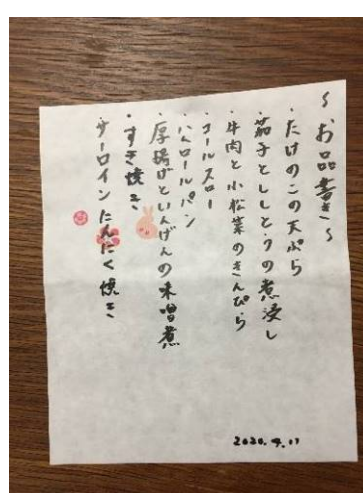 ～お品書き～
・たけのこの天ぷら
・茄子とししとうの煮浸し
・牛肉と小松菜のきんぴら
・コールスロー
・ハムロールパン
・厚揚げといんげんの味噌煮
・すき焼き
・サーロインたんにく焼き
2020.9.17